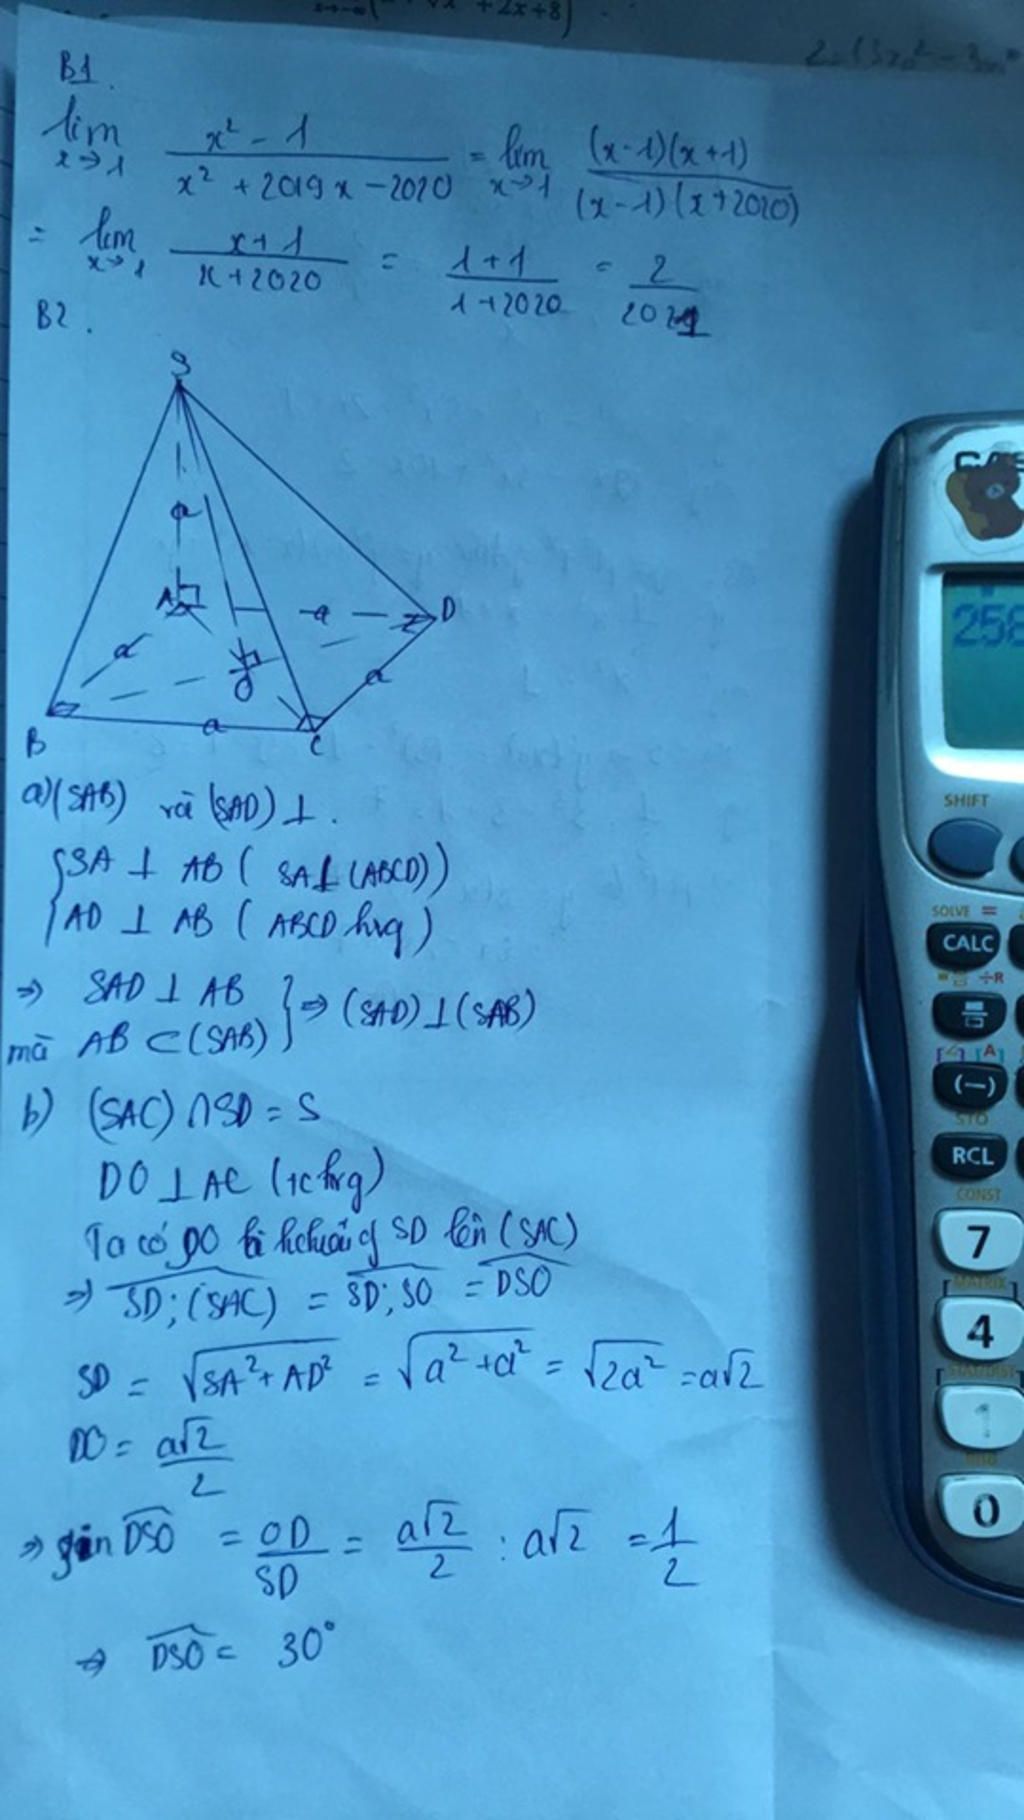 + 2x+8)
B1.
lim x→1 (x² - 1)/(x² + 2019x - 2020) = lim x→1 (x-1)(x+1)/(x-1)(x+2020)
= lim x→1 (x+1)/(x+2020) = (1+1)/(1+2020) = 2/2021
B2.
S
a
A
a D
a
O a
a
B C
a) (SAB) và (SAD) ⊥.
{ SA ⊥ AB ( SA ⊥ (ABCD))
AD ⊥ AB ( ABCD hvg )
⇒ SAD ⊥ AB
mà AB ⊂ (SAB) } ⇒ (SAD) ⊥ (SAB)
b) (SAC) ∩ SD = S
DO ⊥ AC (tc hvg)
Ta có DO SD lên (SAC)
⇒ SD; (SAC) = SD; SO = DSO
SD = √(SA² + AD²) = √(a² + a²) = √(2a²) = a√2
DO = a√2/2
⇒ sin DSO = OD/SD = a√2/2 : a√2 = 1/2
⇒ DSO = 30°
258
SHIFT
SOLVE =
CALC
÷R
(−)
STO
RCL
CONST
7
MATRIX
4
1
0